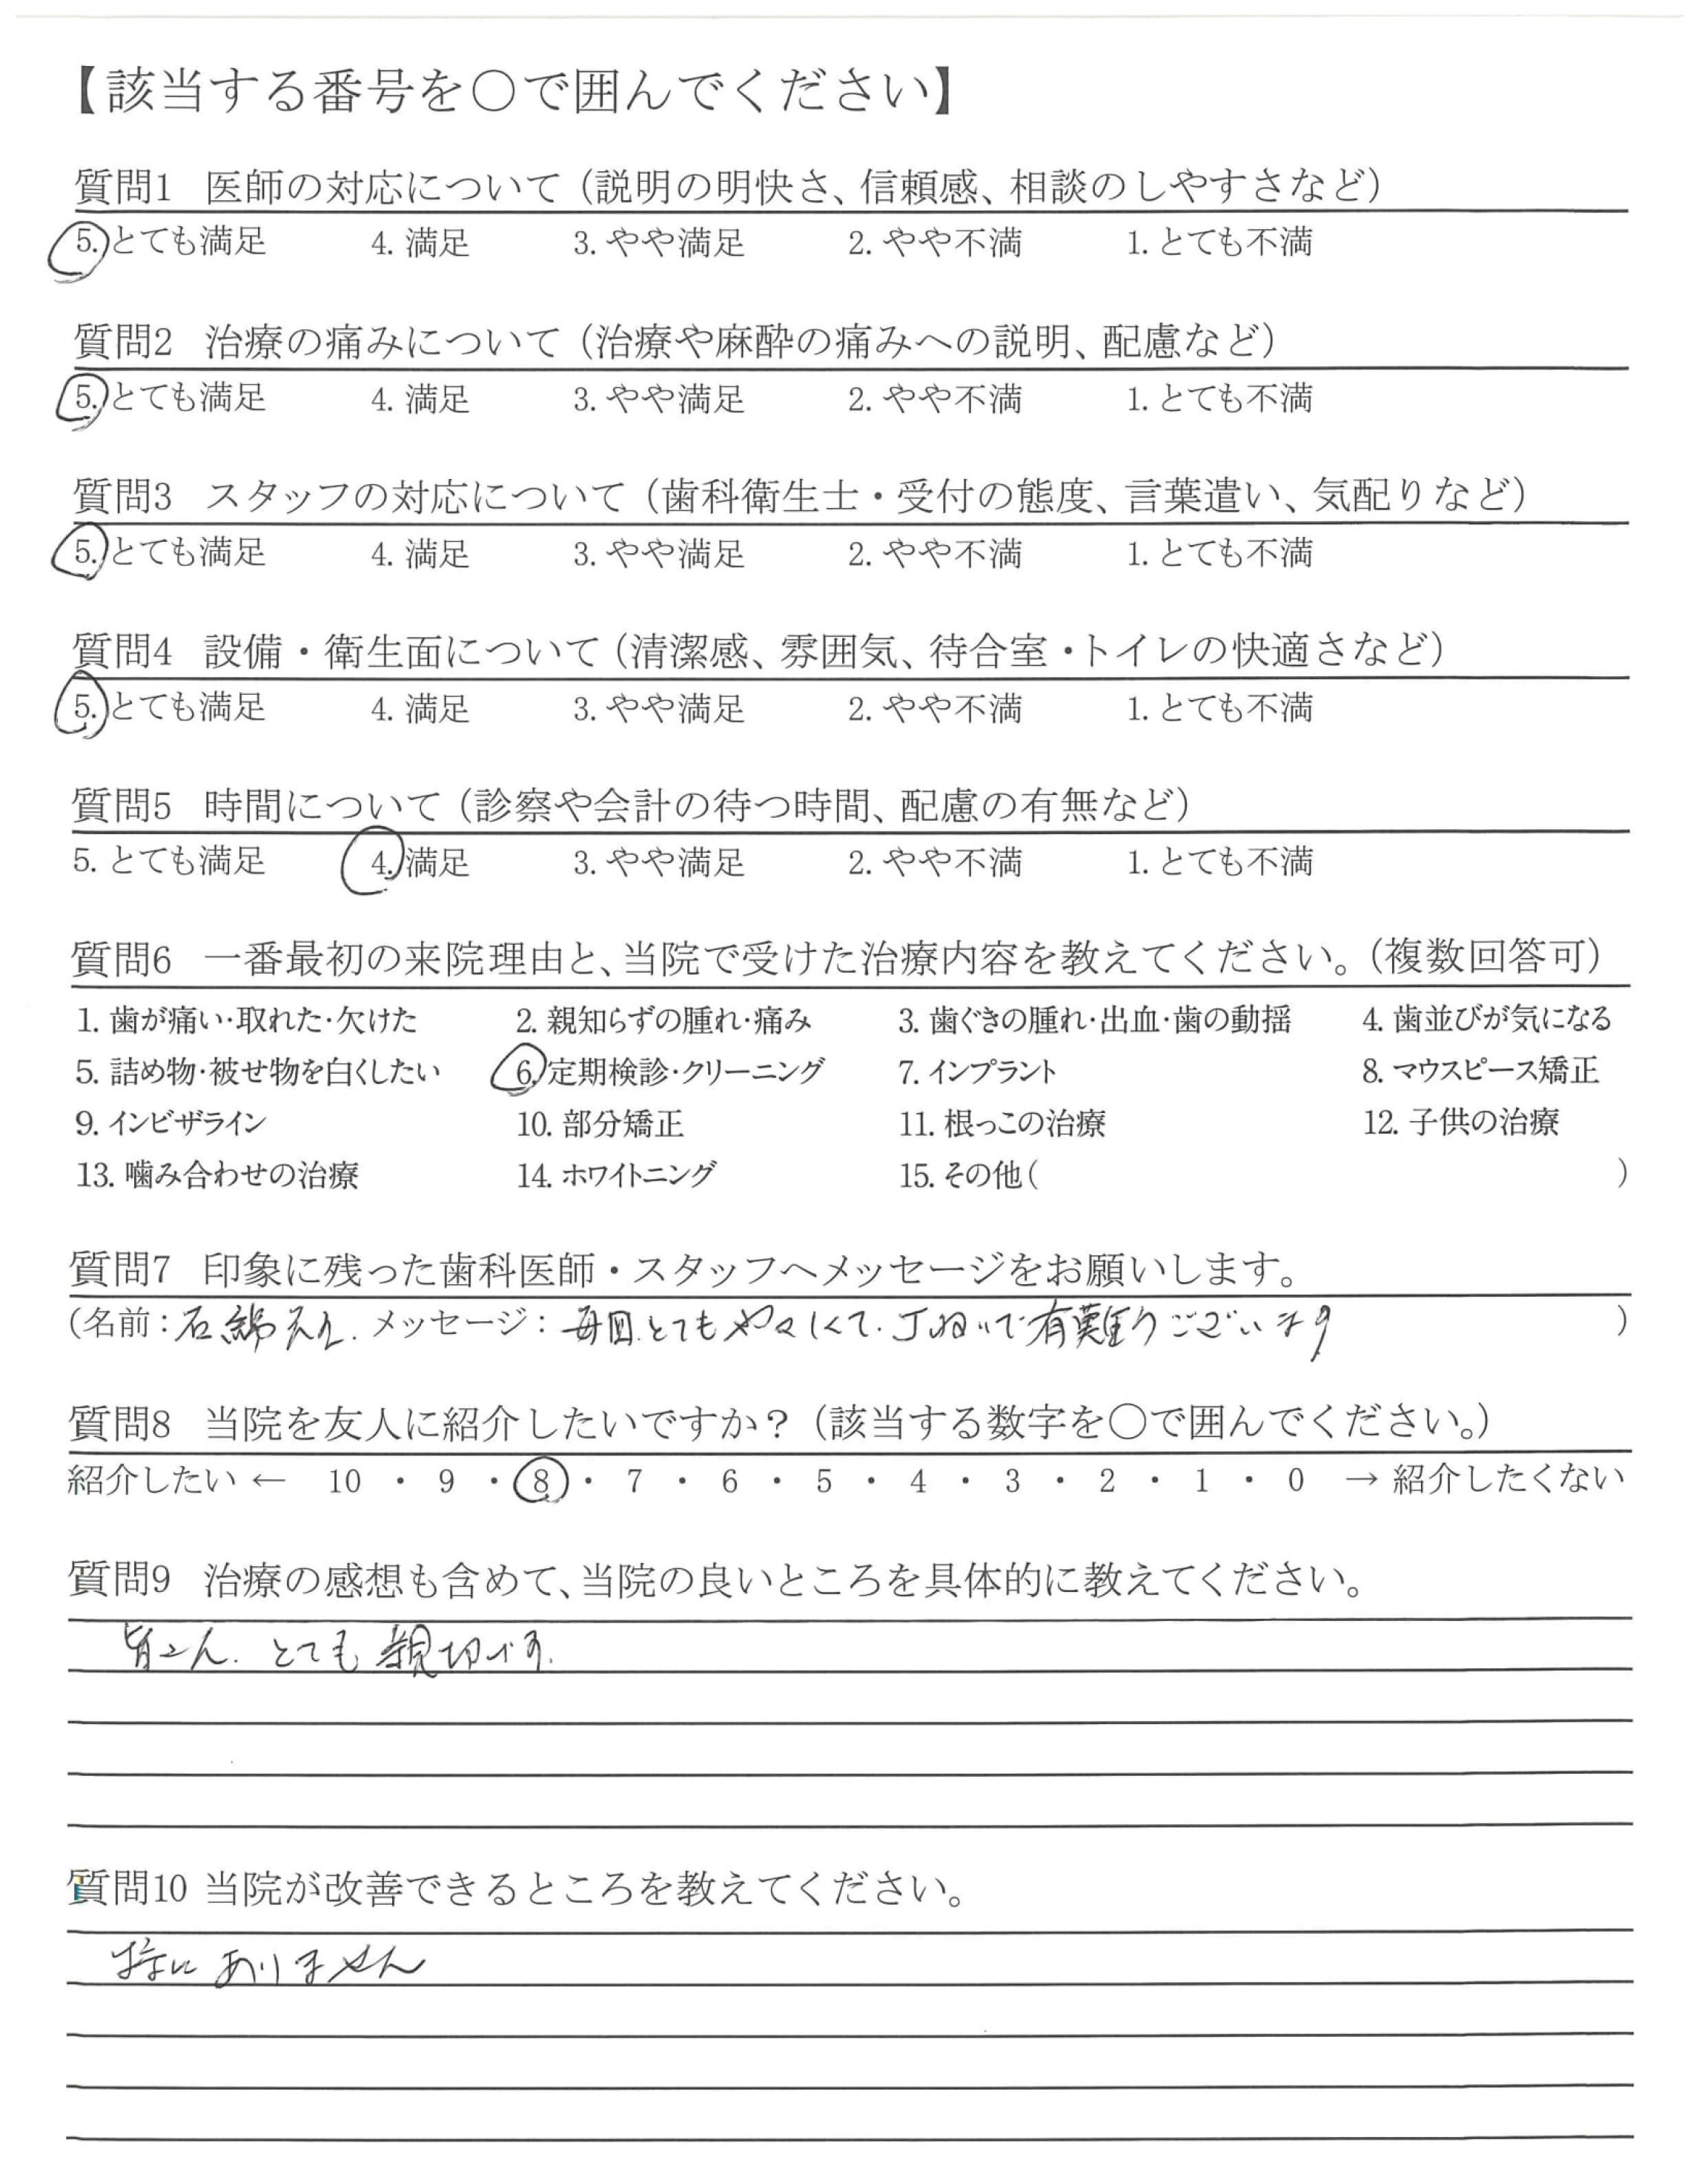 【該当する番号を○で囲んでください】
質問1 医師の対応について（説明の明快さ、信頼感、相談のしやすさなど）
5. とても満足 4. 満足 3. やや満足 2. やや不満 1. とても不満
質問2 治療の痛みについて（治療や麻酔の痛みへの説明、配慮など）
5. とても満足 4. 満足 3. やや満足 2. やや不満 1. とても不満
質問3 スタッフの対応について（歯科衛生士・受付の態度、言葉遣い、気配りなど）
5. とても満足 4. 満足 3. やや満足 2. やや不満 1. とても不満
質問4 設備・衛生面について（清潔感、雰囲気、待合室・トイレの快適さなど）
5. とても満足 4. 満足 3. やや満足 2. やや不満 1. とても不満
質問5 時間について（診察や会計の待つ時間、配慮の有無など）
5. とても満足 4. 満足 3. やや満足 2. やや不満 1. とても不満
質問6 一番最初の来院理由と、当院で受けた治療内容を教えてください。（複数回答可）
1. 歯が痛い・取れた・欠けた 2. 親知らずの腫れ・痛み 3. 歯ぐきの腫れ・出血・歯の動揺 4. 歯並びが気になる
5. 詰め物・被せ物を白くしたい 6. 定期検診・クリーニング 7. インプラント 8. マウスピース矯正
9. インビザライン 10. 部分矯正 11. 根っこの治療 12. 子供の治療
13. 噛み合わせの治療 14. ホワイトニング 15. その他（ ）
質問7 印象に残った歯科医師・スタッフへメッセージをお願いします。
（名前： メッセージ：毎回とても やさしくて、丁ねいで有難うございます ）
質問8 当院を友人に紹介したいですか？（該当する数字を○で囲んでください。）
紹介したい ← 10 ・ 9 ・ 8 ・ 7 ・ 6 ・ 5 ・ 4 ・ 3 ・ 2 ・ 1 ・ 0 → 紹介したくない
質問9 治療の感想も含めて、当院の良いところを具体的に教えてください。
皆さん、とても 親切です。
質問10 当院が改善できるところを教えてください。
特に ありません